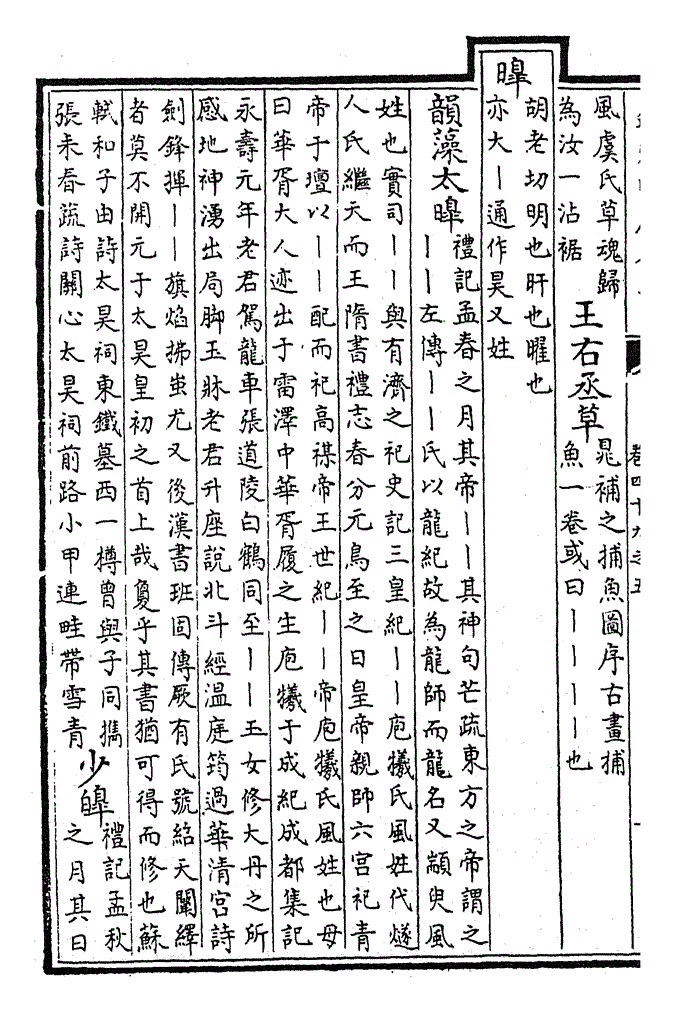 卷四十九之五
風虞氏草魂歸
為汝一沾裾
王右丞草
晁補之捕魚圖序古畫捕
魚一卷或曰丨丨丨丨也
暤
胡老切明也旰也曜也
亦大丨通作昊又姓
韻藻太暤
禮記孟春之月其帝丨丨其神句芒疏東方之帝謂之
丨丨左傳丨丨氏以龍紀故為龍師而龍名又顓臾風
姓也實司丨丨與有濟之祀史記三皇紀丨丨庖犧氏風姓代燧
人氏繼天而王隋書禮志春分元鳥至之日皇帝親師六宮祀青
帝于壇以丨丨配而祀高禖帝王世紀丨丨帝庖犧氏風姓也母
曰華胥大人迹出于雷澤中華胥履之生庖犧于成紀成都集記
永壽元年老君駕龍車張道陵白鶴同至丨丨玉女修大丹之所
感地神湧出局脚玉牀老君升座說北斗經溫庭筠過華清宮詩
劍鋒揮丨丨旗焰拂蚩尤又後漢書班固傳厥有氏號紹天闡繹
者莫不開元于太昊皇初之首上哉敻乎其書猶可得而修也蘇
軾和子由詩太昊祠東鐵墓西一樽曾與子同擕
張耒春蔬詩關心太昊祠前路小甲連畦帶雪青
少暤
禮記孟秋
之月其日